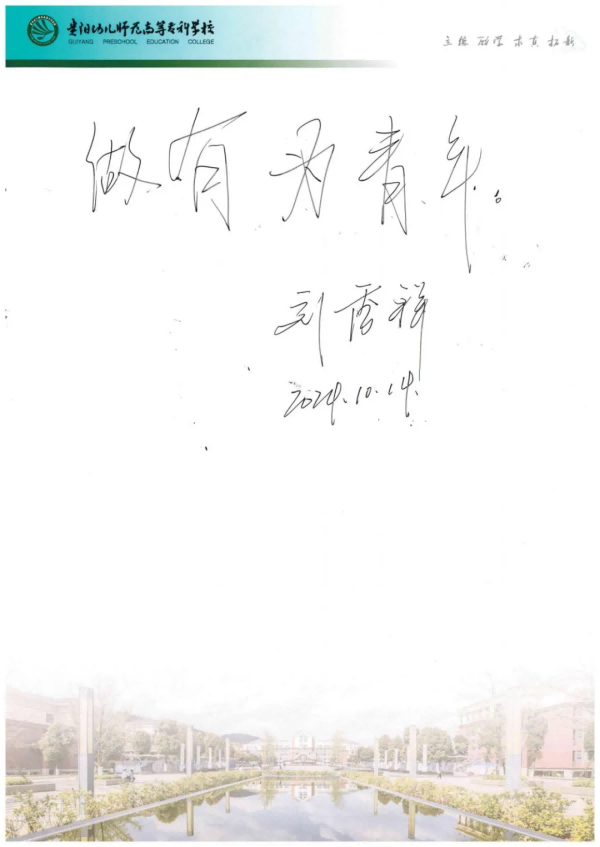 贵阳幼儿师范高等专科学校
GUIYANG PRESCHOOL EDUCATION COLLEGE
立德 研学 求真 拓新
做有为青年。
刘秀祥
2024.10.14.